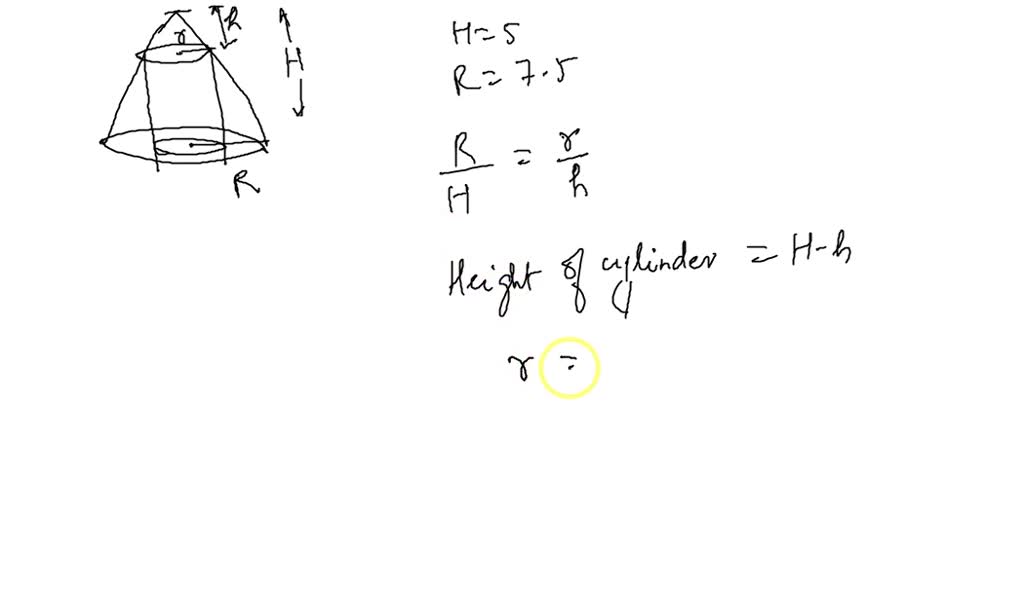 r
h
H
R
H = 5
R = 7.5
R/H = r/h
Height of cylinder = H-h
r =